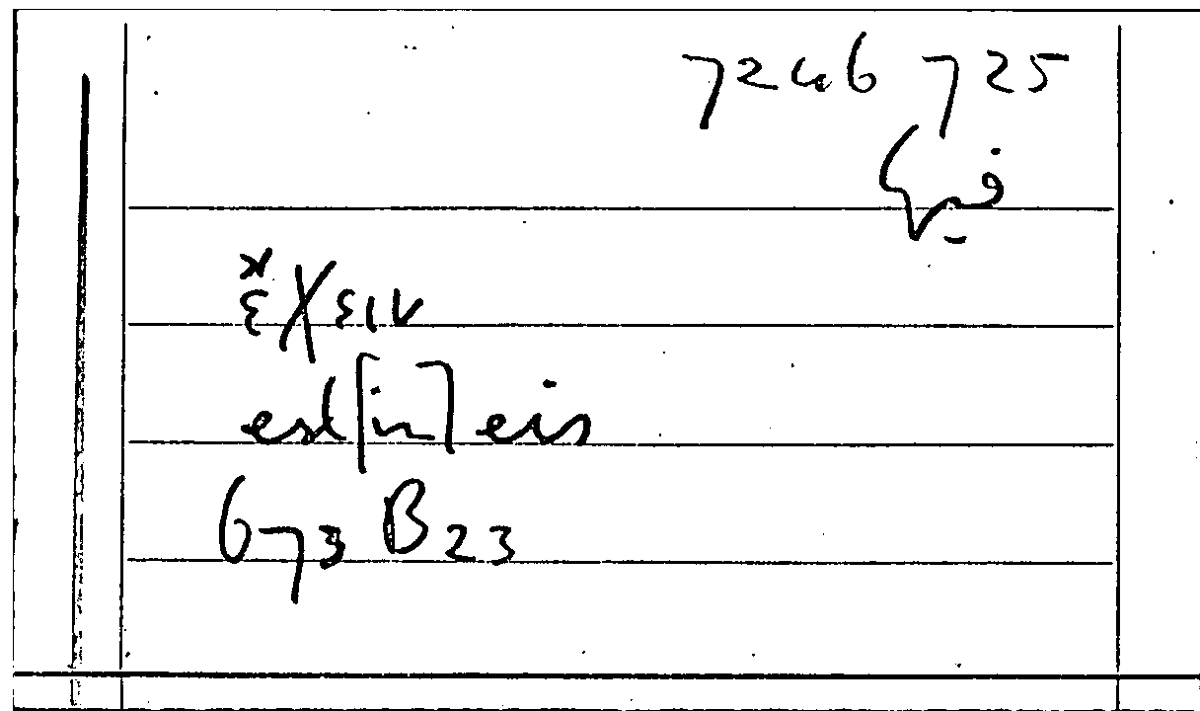 7246 725
ἔχειν
est [in] eis
673 B 23